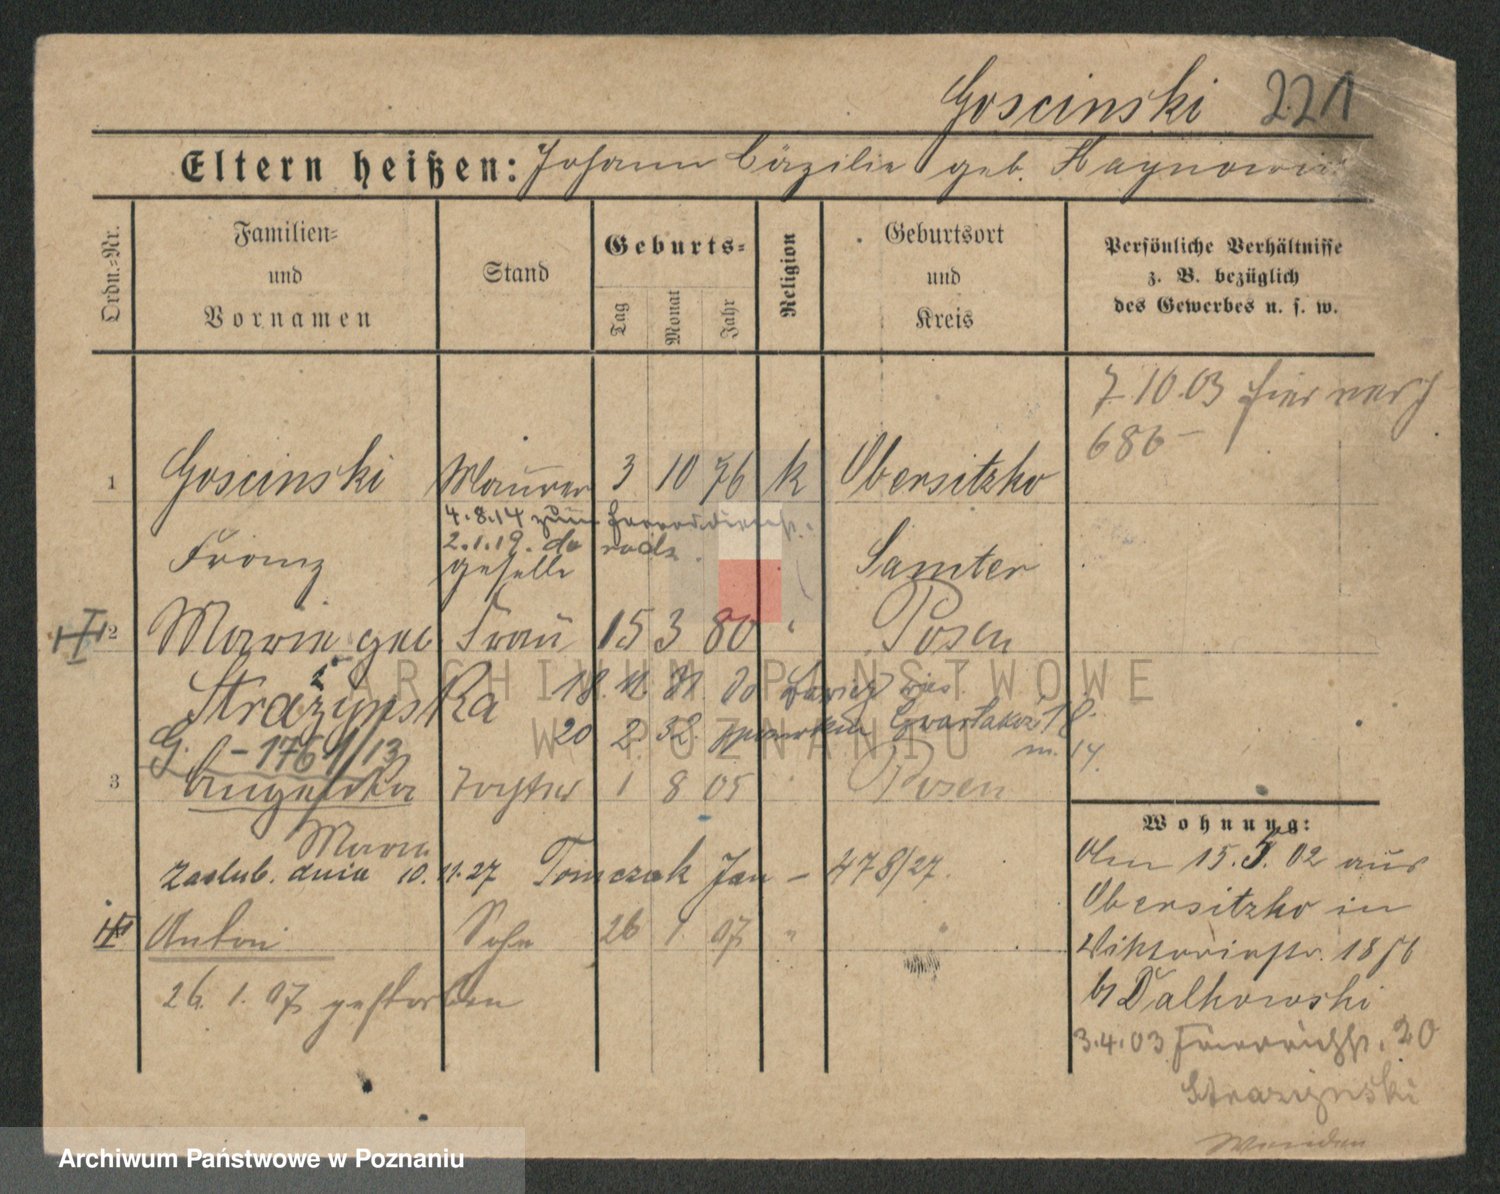 Goscinski 221
Eltern heißen: Johann Cäzilie geb.
Ordn.-Nr.
Familien-
und
Vornamen
Stand
Geburts-
Tag
Monat
Jahr
Religion
Geburtsort
und
Kreis
Persönliche Verhältnisse
z. B. bezüglich
des Gewerbes u. s. w.
7 10.03 hier
686-
1 Goscinski Maurer 3 10 76 k Obersitzko
4.8.14 zum
Franz 2.1.19. Samter
geselle
2 Marie geb. Frau 15 3 80 " Posen
Strażynska 18. 11. 31.
20 2. 32. 18.
m. 14.
G. - 1761/13
3 Angelika Tochter 1 8 05 Posen
Maria
zaslub. dnia 10. 11. 27 Tomczak Jan - 478/27.
Anton Sohn 26 1 07 " "
26. 1. 07 gestorben
Wohnung:
Am 15.5.02 aus
Obersitzko in
Viktoriastr. 18
b/ Dalkowski
3.4.03 20
Strazynski
ARCHIWUM PAŃSTWOWE
W POZNANIU
Archiwum Państwowe w Poznaniu